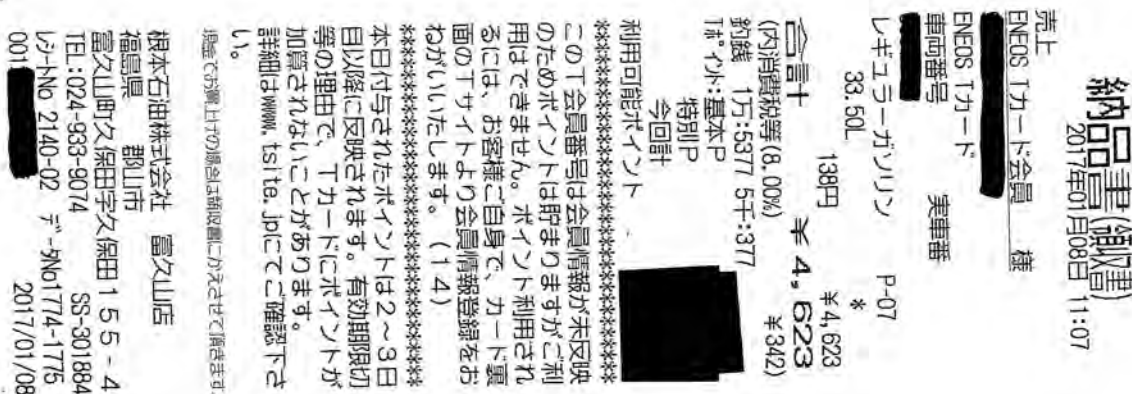 納品書(領収書)
2017年01月08日 11:07
売上
ENEOS Tカード会員 様
ENEOS Tカード
車両番号 実車番
レギュラーガソリン P-07
*
33.50L 138円 ¥4,623
合計 ¥4,623
(内消費税等(8.00%) ¥342)
釣銭 1万:5377 5千:377
Tポイント:基本P
特別P
今回計
利用可能ポイント
********************************
このT会員番号は会員情報が未反映
のためポイントは貯まりますがご利
用はできません。ポイント利用され
るには、お客様ご自身で、カード裏
面のTサイトより会員情報登録をお
ねがいいたします。(14)
********************************
本日付与されたポイントは2~3日
目以降に反映されます。有効期限切
等の理由で、Tカードにポイントが
加算されないことがあります。
詳細はwww.tsite.jpにてご確認下さ
い。
現金でお買上げの場合は領収書にかえさせて頂きます。
根本石油株式会社 富久山店
福島県 郡山市
富久山町久保田字久保田155-4
TEL:024-933-9074 SS-301884
レシートNo 2140-02 データNo1774-1775
001 2017/01/08